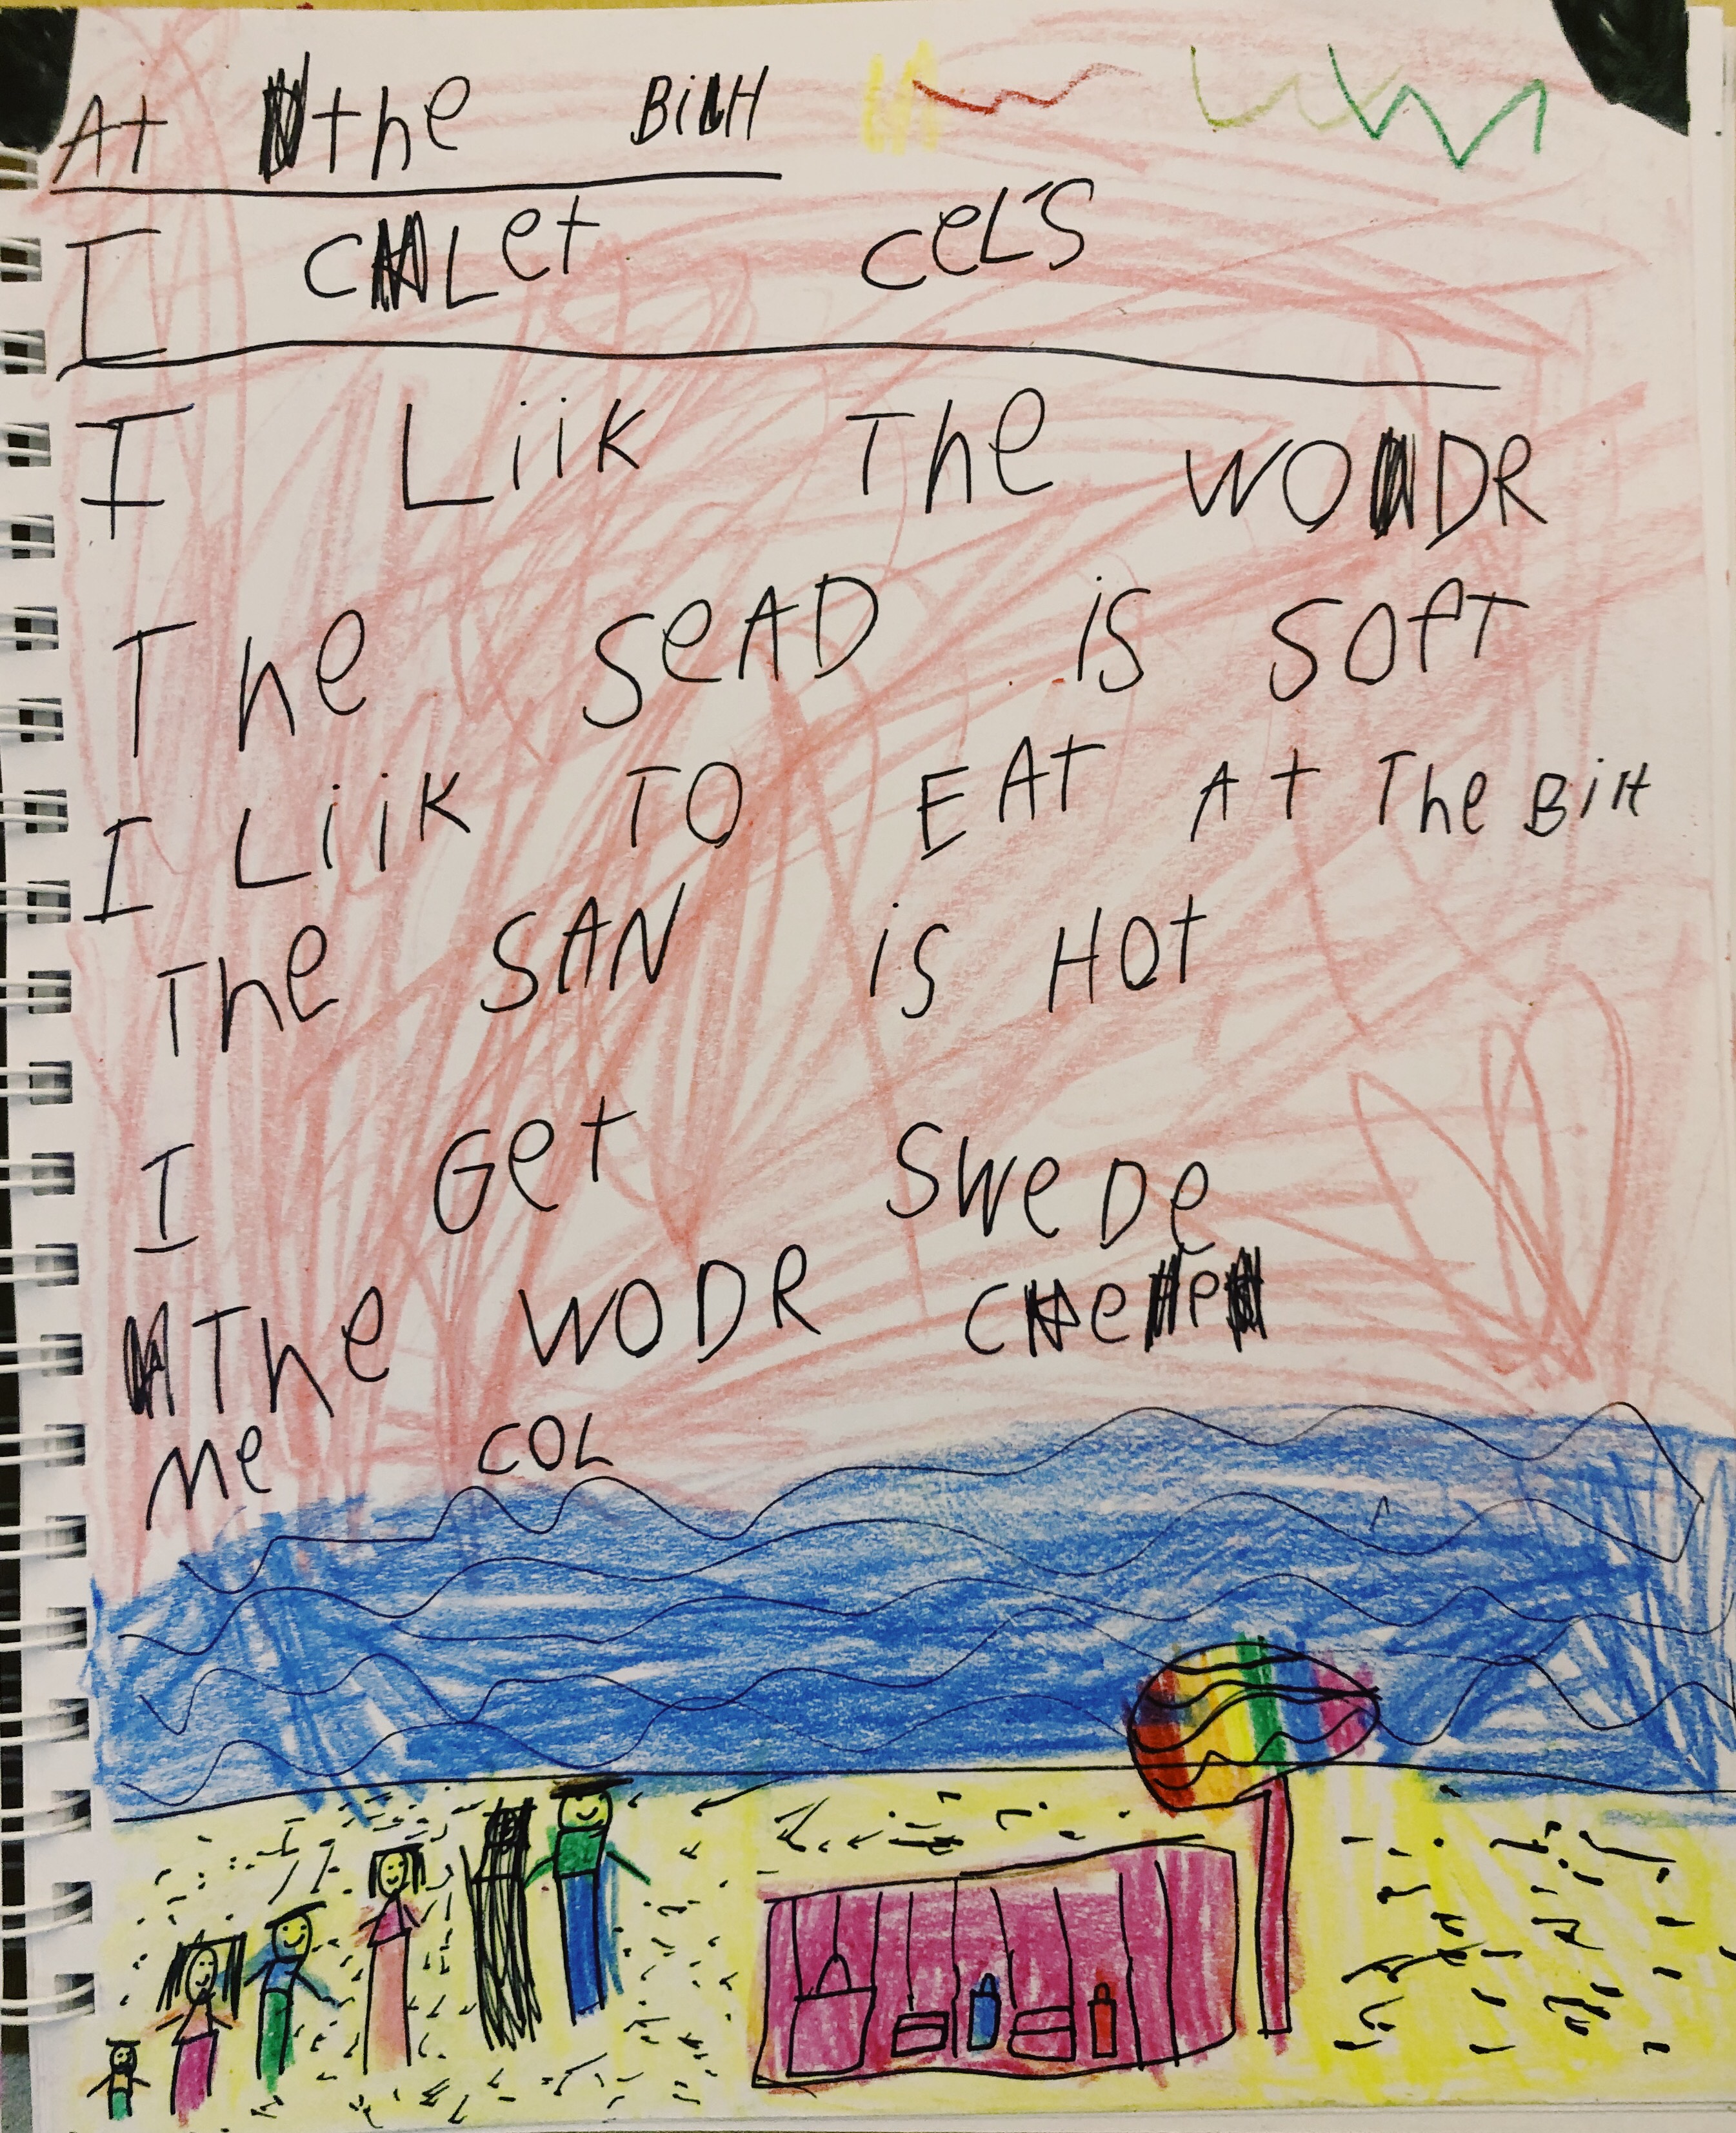 At the BiH
I CLet ceL'S
I Liik The WODR
The SeAD is SOFT
I Liik TO EAT At The BiH
The SAN is HOt
I Get SWeDe
The WODR Ce
me COL